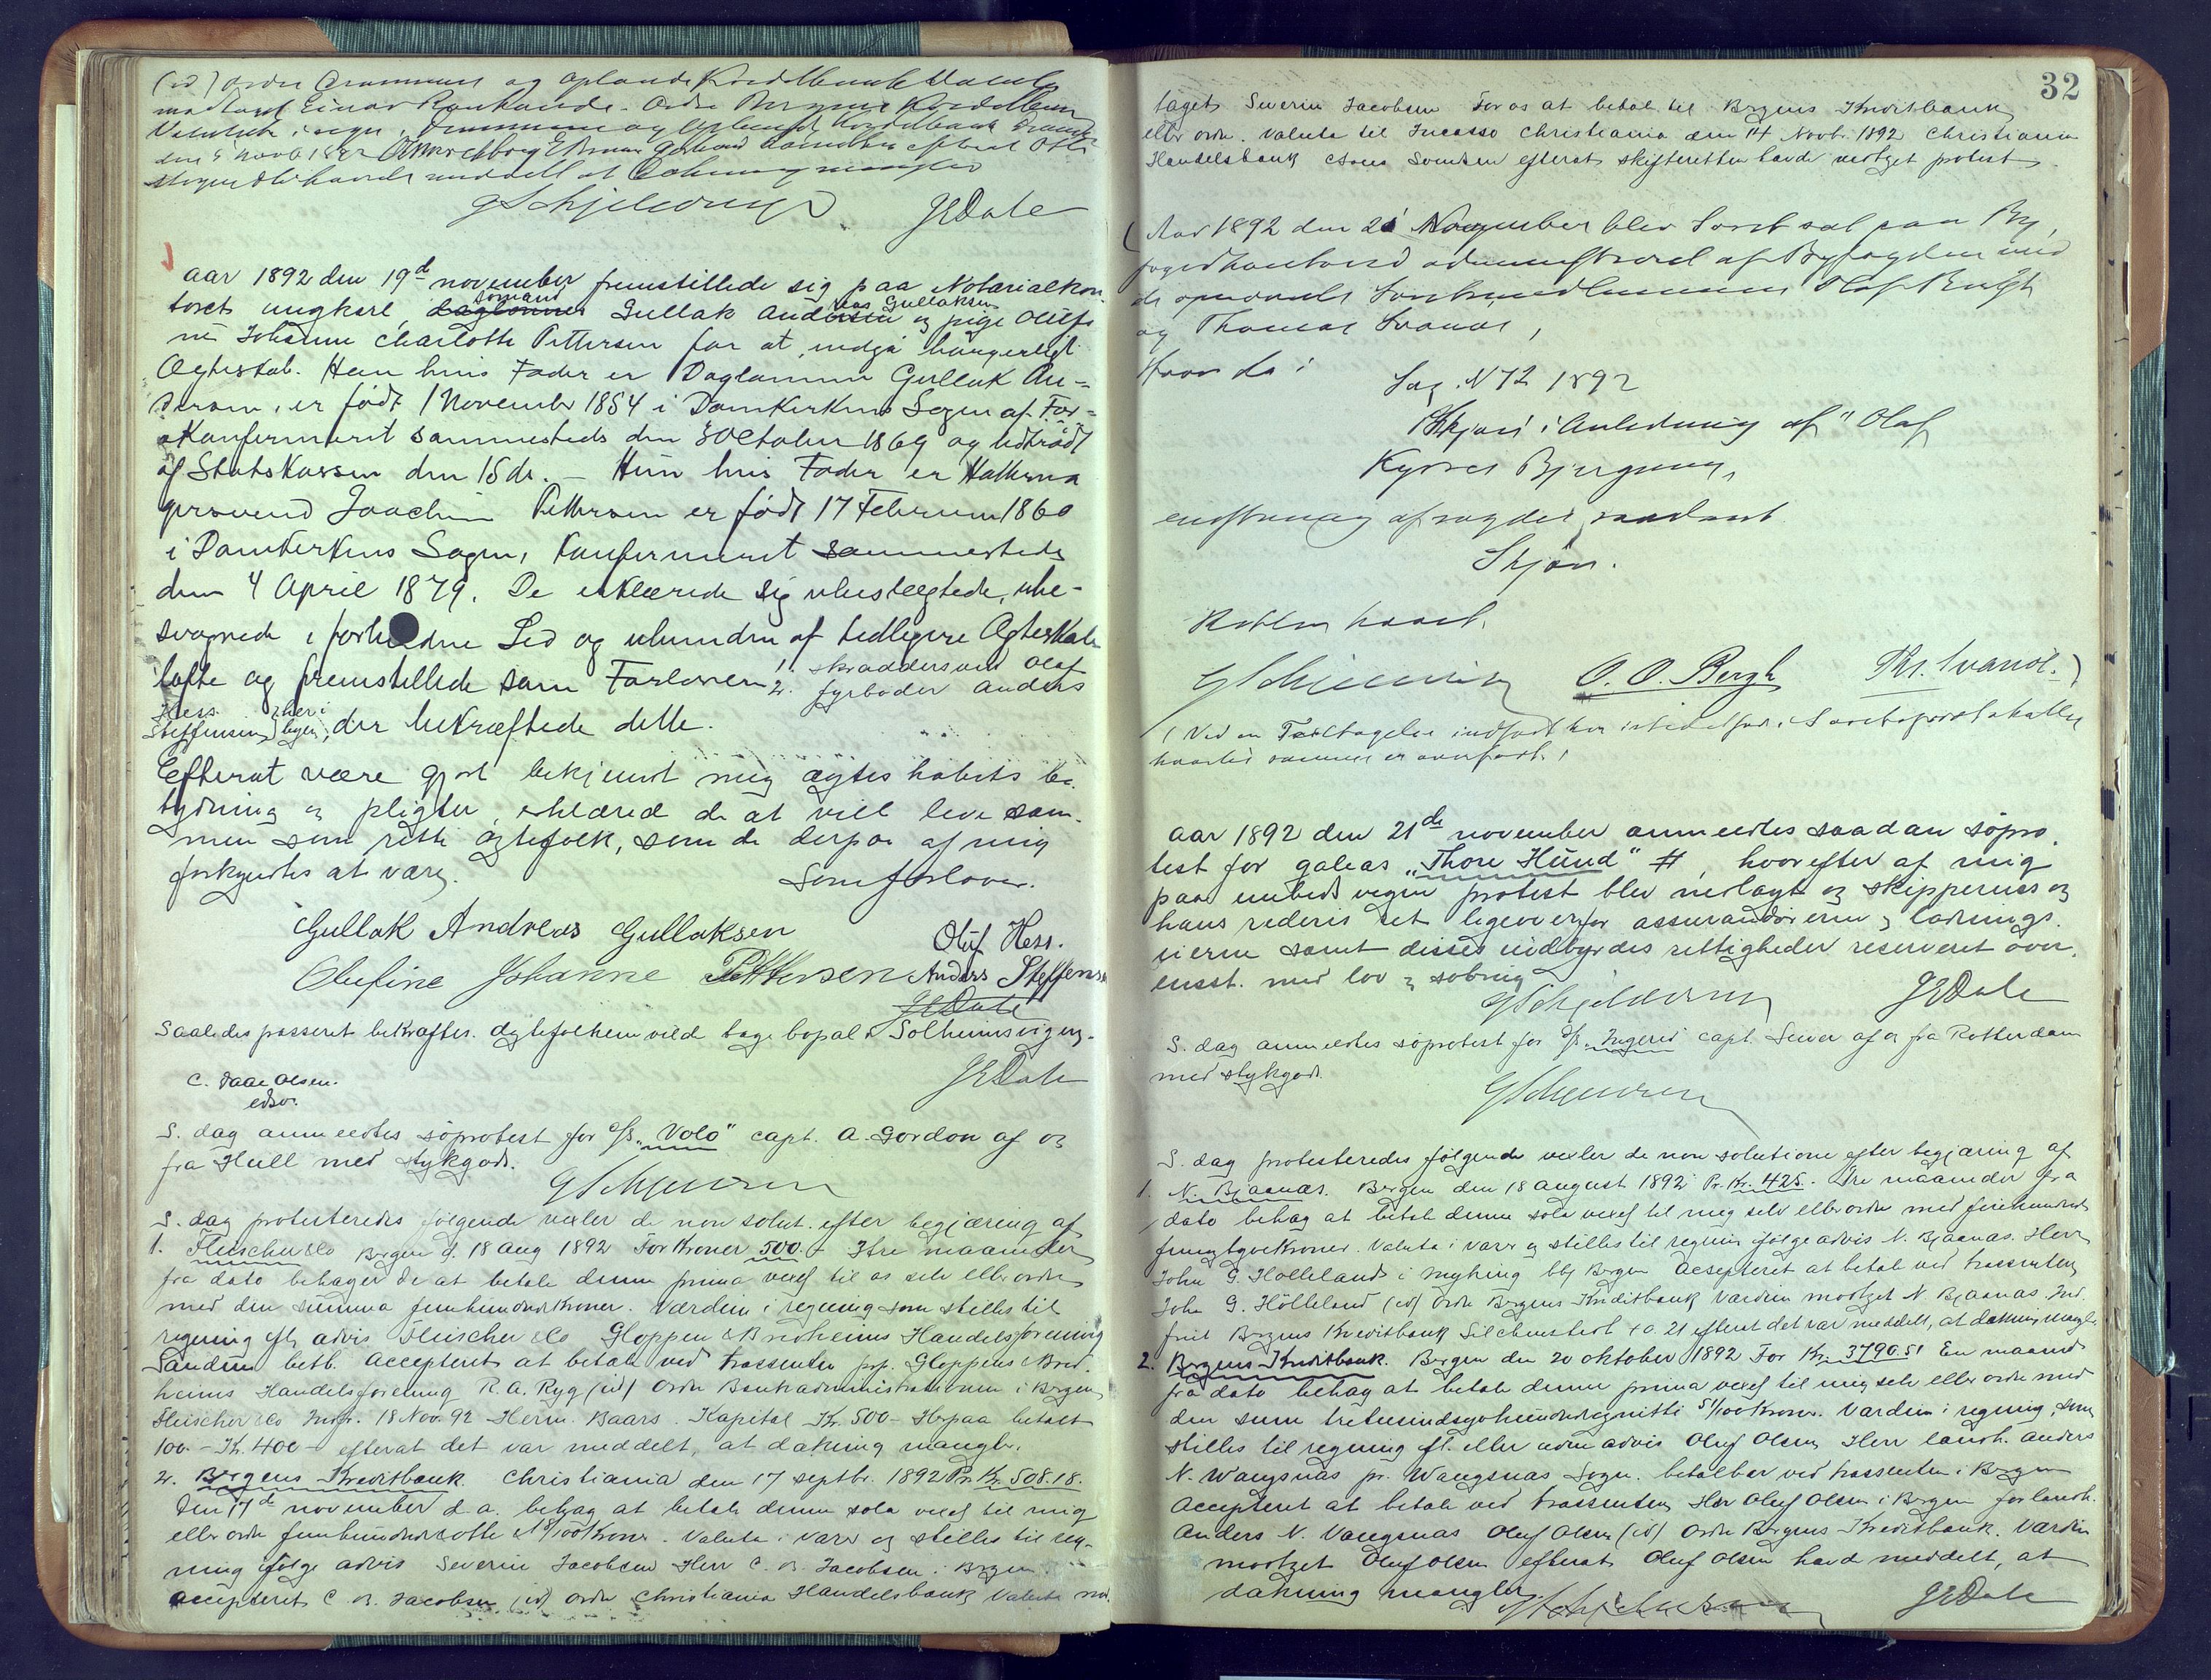 (id) Ordre Drammens og Oplands Kreditbank Værdi
modtaget Einar Ordre Bergens Kreditbank
Drammens og Oplands Kreditbank
den 5 Novb 1892 efterat Otto
havde meddelt at Dækning mangler
GSchjelderup JEDale
aar 1892 den 19de november fremstillede sig paa Notarialkon-
toret ungkarl, daglönner sömand Gullak Andersen eas Gullaksen og pige Olufi-
ne Johanne Charlotte Pettersen for at indgå borgerligt
Ægteskab. Han hvis Fader er Daglønner Gullak An-
dersen, er født 1 November 1854 i Domkirkens Sogn af For-
Konfirmeret sammesteds den 3 October 1869 og udtrådt
af Statskirken den 15 ds. – Hun hvis Fader er Hatterma
gersvend Joachim Pettersen er født 17 Februar 1860
i Domkirkens Sogn, Konfirmeret sammesteds
den 4 April 1879. De erklærede sig ubeslægtede, ube-
svogrede i forbudne Led og ubundne af tidligere Ægteskabs
løfte og fremstillede som Forlovere 1. skræddersvend Oluf
2. fyrböder Anders
Hess
Steffensen, her i byen, der bekræftede dette.
Efterat være gjort bekjendt med ægteskabets be-
tydning og pligter, erklæred de at vill leve sam-
men som rette ægtefolk, som de derpaa af mig
forkyndtes at være.
Som forlover.
Gullak Andreas Gullaksen Oluf Hess.
Olufine Johanne Pettersen Anders Steffensen
JEDale
Saaledes passeret bekræftes. Ægtefolkene vild tage bopæl i Solheimsvigen.
JEDale
C. Daae Olsen.
edsv.
S. dag anmeldtes söprotest for d/s "Volo" capt. A. Gordon af og
fra Hull med stykgods.
GSchjelderup
S. dag protesteredes følgende vexler de non solut. efter begjæring af
1. Fleischer & Co Bergen d. 18 Aug 1892 For Kroner 500.– Tre maaneder
fra dato behager De at betale denne prima vexel til os selv eller ordre
med den summa femhundrede Kroner. Værdien i regning som stilles til
regning eft. advis Fleischer & Co Gloppen & Bredheims Handelsforening
Sandene betb. Accepteret at betale ved trassenten pp. Gloppens & Bred-
heims Handelsforening R.A. Ryg (id) Ordre Bankadministrationen i Bergen
Fleischer & Co Indfr. 18 Nov. 92 Herm. Baars. Kapital Kr. 500– Herpaa betalt
100.– Kr. 400– efterat det var meddelt, at dækning mangle.
2. Bergens Kreditbank. Christiania den 17 septbr. 1892 Pr. Kr. 508.18.
Den 17de november d.a. behag at betale denne sola vexel til mig
eller ordre femhundrede otte 18/100 Kroner. Valuta i varer og stilles til reg-
ning ifølge advis Severin Jacobsen Herr C. B. Jacobsen i Bergen
Accepteret C. B. Jacobsen (id) Ordre Christiania Handelsbank Valuta mod-
32
taget Severin Jacobsen For os at betale til Bergens Kreditbank
eller ordre. Valuta til Incasso Christiania den 14 Novbr. 1892 Christiania
Handelsbank Svendsen efterat skifteretten havde vedtaget protest
(Aar 1892 den 21 November blev Soret sat paa By
fogedkontoret administreret af Byfogden med
de opnævnte Søretsmedlemmer Olaf Bergh
og Thomas Svanøe,
Hvor da:
Sag. N 12 1892
Skjøn i Anledning af "Olaf
Kyrres Bjergning,
enstemmig afsagdes saadant
Skjøn.
Retten hævet.
GSchjelderup O. O. Bergh Ths. Svanöe.)
(Ved en Feiltagelse indført her istedetfor i Soretsprotokollen
hvortil samme er overført.)
aar 1892 den 21de november anmeldtes saadan söpro-
test for galeas "Thore Hund" #, hvorefter af mig
paa embeds vegne protest blev nedlagt og skipperens og
hans rederis ret ligeoverfor assurandörerne og ladnings-
eierne samt disses indbyrdes rettigheder reserveret over-
ensst. med lov og sobrug
GSchjelderup JEDale
S. dag anmeldtes söprotest for d/s "Ingerid" capt. Siver af og fra Rotterdam
med stykgods.
GSchjelderup
S. dag protesteredes følgende vexler de non solutione efter begjæring af
1. N. Bjaanæs. Bergen den 18 august 1892 Pr. Kr. 425.– Tre maaneder fra
dato behag at betale denne sola vexel til mig selv eller ordre med firehundred
femogtyve Kroner. Valuta i varer og stilles til regning ifølge advis N. Bjaanæs. Herr
John G. Hölleland i Myking bbg Bergen Accepteret at betale ved trassenten
John G. Hölleland (id) Ordre Bergens Kreditbank Værdien modtaget N. Bjaanæs. Ind-
friet Bergens Kreditbank efterat det var meddelt, at dækning mangle.
2. Bergens Kreditbank. Bergen den 20 oktober 1892 For Kr. 3790.51 En maaned
fra dato behag at betale denne prima vexel til mig selv eller ordre med
den sum tretusindsyvhundredeognitti 51/100 Kroner. Værdien i regning, som
stilles til regning efl. eller uden advis Oluf Olsen Herr landh. Anders
N. Wangsnæs pr. Wangsnæs Sogn. betalbar ved trassenten i Bergen
Accepteret at betale ved trassenten Herr Oluf Olsen i Bergen for landh.
Anders N. Vangsnæs Oluf Olsen (id) Ordre Bergens Kreditbank. Værdien
modtaget Oluf Olsen efterat Oluf Olsen havd meddelt, at
dækning mangler
GSchjelderup JEDale